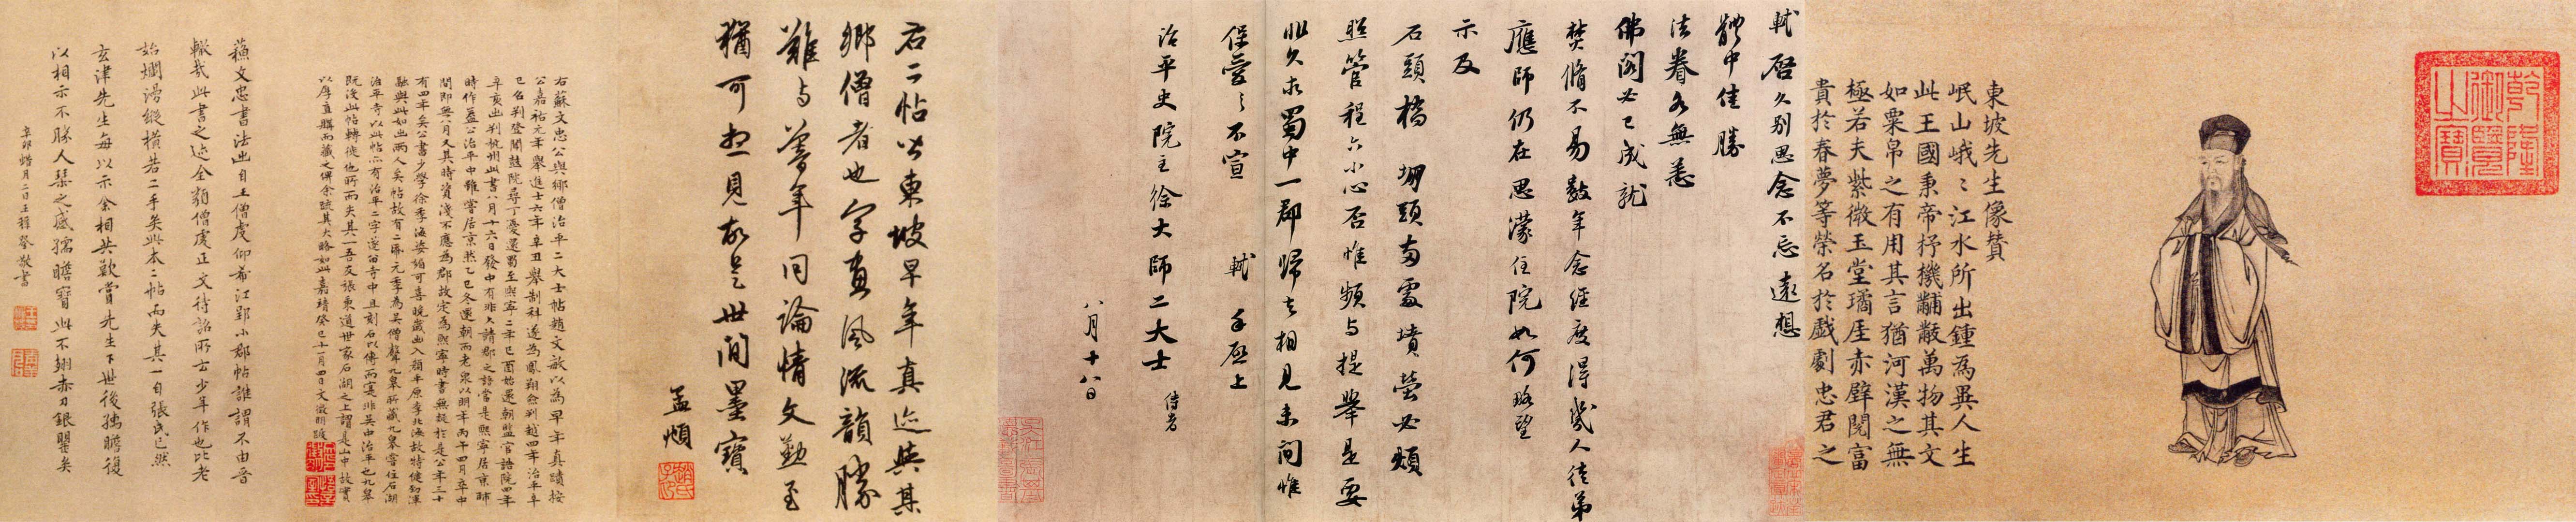 乾隆御覽之寶
東坡先生像贊
岷山峨〻江水所出鍾為異人生
此王國秉帝杼機黼黻萬物其文
如粟帛之有用其言猶河漢之無
極若夫紫微玉堂瓊厓赤壁閱富
貴於春夢等榮名於戲劇忠君之
軾啓久別思念不忘遠想
體中佳勝
法眷各無恙
佛閣必已成就
焚脩不易數年念經度得幾人徒弟
應師仍在思濛住院如何略望
示及
石頭橋堋頭兩處墳塋必煩
照管程六小心否惟頻與提舉是要
非久求蜀中一郡歸去相見未間惟
保愛之不宣 軾手啓上
治平史院主徐大師二大士 侍者
八月十八日
右二帖皆東坡早年真迹與其
鄉僧者也字畫風流韻勝
難与暮年同論情文勤至
猶可想見故是世間墨寶
孟頫
右蘇文忠公與鄉僧治平二大士帖趙文敏以為早年真蹟按
公嘉祐元年舉進士六年辛丑舉制科遂為鳳翔僉判越四年治平
乙巳判登聞鼓院尋丁憂還蜀至熙寧二年己酉始還朝監官誥院四年
辛亥出判杭州此書八月十六日發中有非久請郡之語當是熙寧居京師
時作蓋公治平中雖嘗居京然乙巳冬還朝而老泉以明年丙午四月卒中
間即無八月又其時資淺不應為郡故定為熙寧時書無疑於是公年三十
有四年矣公書少學徐季海姿媚可喜晚歲出入顏平原李北海故特健勁渾
融與此如出兩人矣帖故有二元季為吳僧聲九皋所藏九皋嘗住石湖
治平寺以此帖亦有治平二字遂留寺中且刻石以傳而寔非吳中治平也九皋
既沒此帖轉徙他所而失其一吾友張秉道世家石湖之上謂是山中故實
以厚直購而藏之俾余疏其大略如此嘉靖癸巳十一月四日文徵明跋
蘇文忠書法出自王僧虔仰希江郢小郡帖誰謂不由晉
轍哉此書之迹全類僧虔正文待詔所云少年作也比老
始爛漫縱橫若二手矣此本二帖而失其一自張氏已然
玄津先生每以示余相共歎賞先生下世後孺瞻復
以相示不勝人琴之感孺瞻寶此不翅赤刀銀罌矣
辛卯蜡月二日王穉登敬書